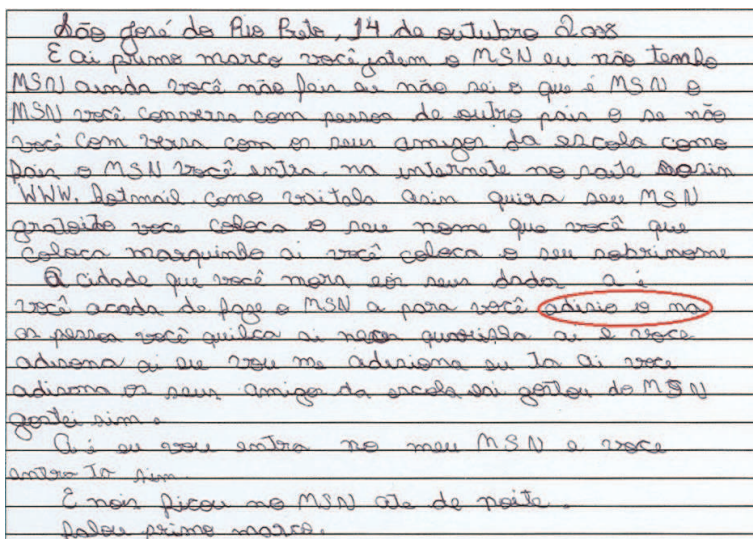 São José do Rio Preto, 14 de outubro 2008
E ai primo marco você jatem o MSN eu não tenho
MSN ainda você não fais ai não sei o que é MSN o
MSN você conversa com pessoa de outro pais o se não
você com versa com os seus amigos da escola como
fais o MSN você entra na internete no saite
WWW. hotmail. como vaitala asin quira seu MSN
gratoito voce coloca o seu nome que você que
coloca marquinho ai você coloca o seu sobrinome
a cidade que você mora eos seus dados a é
você acada de faze o MSN a para você adisio o na
as pessoa você quilca ai ness ai e voce
adisona ai eu vou me adisiona eu ta ai voce
adisona os seus amigos da escola iai gostou do MSN
gostei sim.
Ai é eu vou entra no meu MSN e voce
entra ta sim.
E nois ficou no MSN ate de noite.
falou primo marco.